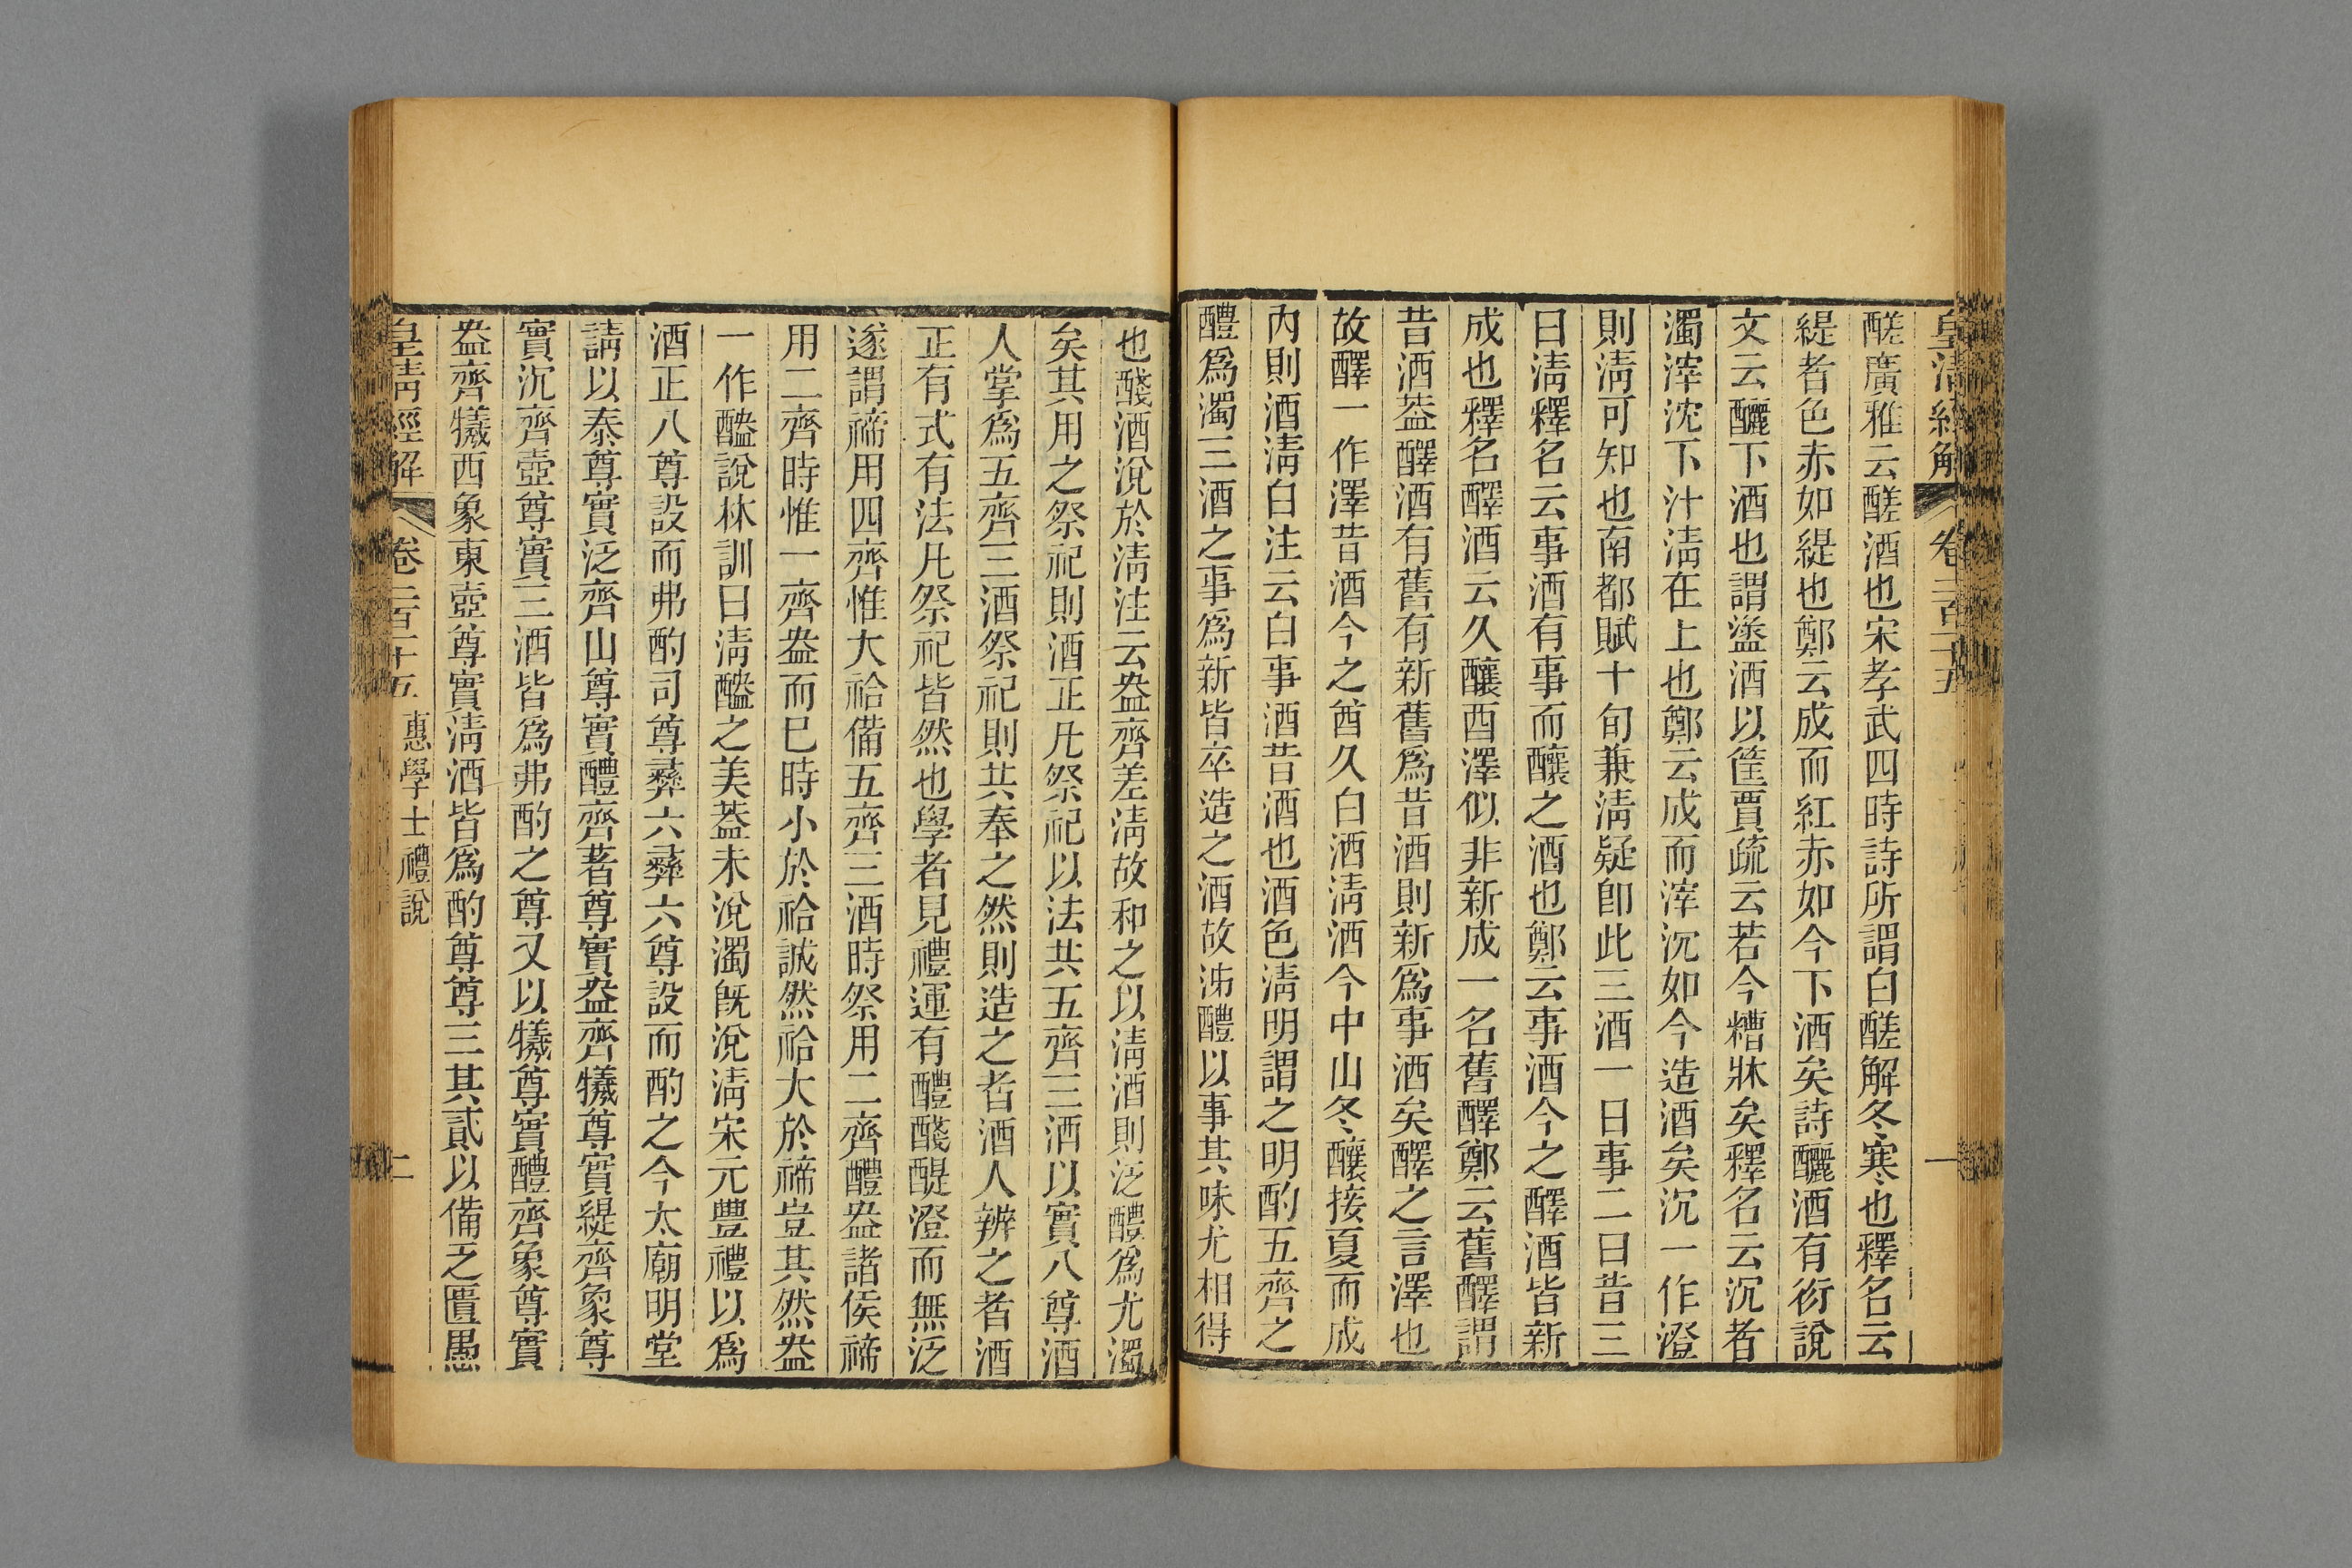 皇淸經解 卷二百十五 一
醝廣雅云醝酒也宋孝武四時詩所謂白醝解冬寒也釋名云
緹者色赤如緹也鄭云成而紅赤如今下酒矣詩釃酒有衍說
文云釃下酒也謂盪酒以筐賈疏云若今糟牀矣釋名云沉者
濁滓沈下汁淸在上也鄭云成而滓沉如今造酒矣沉一作澄
則淸可知也南都賦十旬兼淸疑卽此三酒一曰事二曰昔三
曰淸釋名云事酒有事而釀之酒也鄭云事酒今之醳酒皆新
成也釋名醳酒云久釀酉澤似非新成一名舊醳鄭云舊醳謂
昔酒葢醳酒有舊有新舊爲昔酒則新爲事酒矣醳之言澤也
故醳一作澤昔酒今之酋久白酒淸酒今中山冬釀接夏而成
內則酒淸白注云白事酒昔酒也酒色淸明謂之明酌五齊之
醴爲濁三酒之事爲新皆卒造之酒故泲醴以事其味尤相得
也醆酒涚於淸注云盎齊差淸故和之以淸酒則泛醴爲尤濁
矣其用之祭祀則酒正凡祭祀以法共五齊三酒以實八尊酒
人掌爲五齊三酒祭祀則共奉之然則造之者酒人辨之者酒
正有式有法凡祭祀皆然也學者見禮運有醴醆醍澄而無泛
遂謂禘用四齊惟大祫備五齊三酒時祭用二齊醴盎諸侯禘
用二齊時惟一齊盎而已時小於祫誠然祫大於禘豈其然盎
一作醠說林訓曰淸醠之美葢未涚濁旣涚淸宋元豐禮以爲
酒正八尊設而弗酌司尊彝六彝六尊設而酌之今太廟明堂
請以泰尊實泛齊山尊實醴齊著尊實盎齊犧尊實緹齊象尊
實沉齊壺尊實三酒皆爲弗酌之尊又以犧尊實醴齊象尊實
盎齊犧西象東壺尊實淸酒皆爲酌尊尊三其貳以備乏匱愚
皇淸經解 卷二百十五 惠學士禮說 二